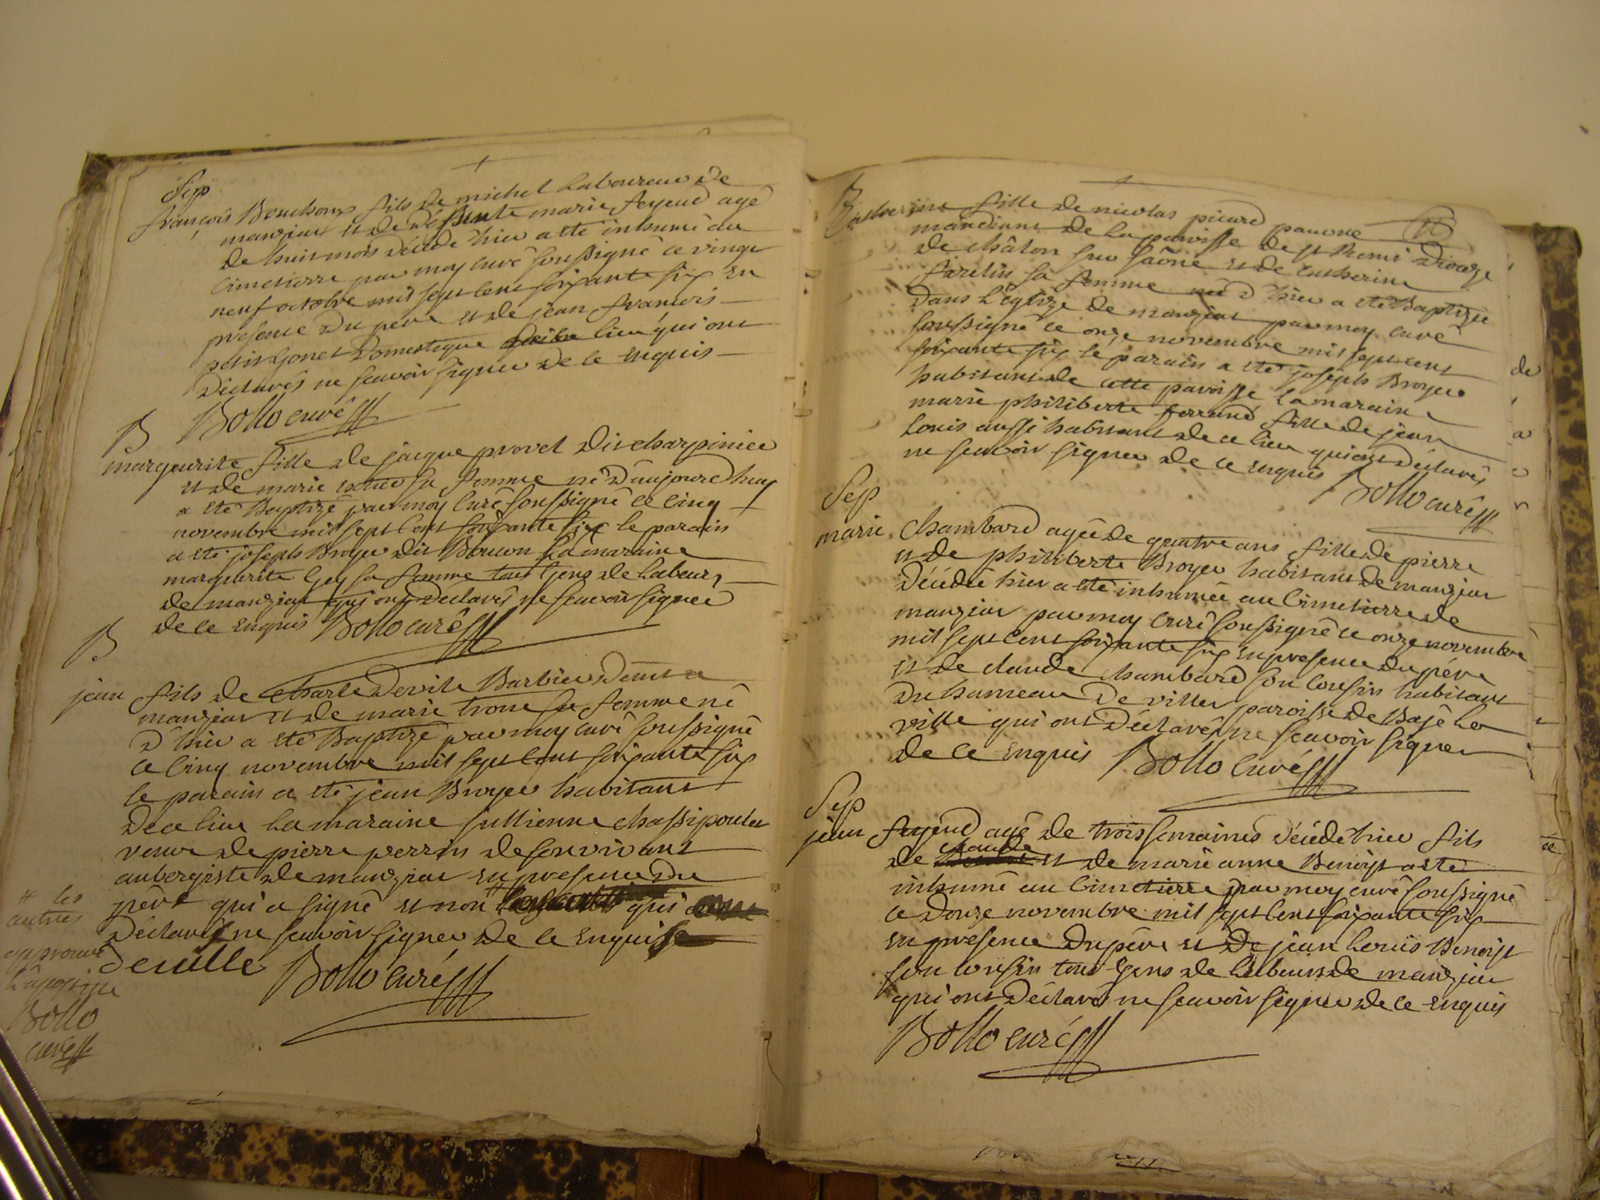 Sep
françois Bouchoux fils de michel Laboureur de
manziat et de défunte marie feyeud agé
de huit mois décédé hier a eté inhumé au
Cimetierre par moy curé soussigné ce vingt
neuf octobre mil sept cent soixante six en
présence du père et de jean françois
petit Gonet Domestique lieu qui ont
Déclarés ne scavoir signer de ce enquis
Bollo curé
B
marguerite fille de jacque provet dit charpinier
et de marie sa femme né d'aujourd'huy
a eté Baptizé par moy curé soussigné ce cinq
novembre mil sept cent soixante six le parain
a eté joseph Broyer dit Boucon La maraine
marguerite Gey sa femme tous Gens de Labeur
de manziat qui ont declarés ne scavoir signer
de ce enquis Bollo curé
B
jean fils de Charle Devile Barbier Demt a
manziat et de marie trone sa femme né
d'hier a eté Baptizé par moy curé soussigné
ce Cinq novembre mil sept cent soixante six
le parain a eté jean Broyer habitant
de ce lieu La maraine jullienne chassipoulet
veuve de pierre perrin de son vivant
aubergiste de manziat en presence du
père qui a signé et non qui
Déclaré ne scavoir signer de ce enquis
deville Bollo curé
# les
autres
approuvé
L'apostille
Bollo
curé
B
Catherine fille de nicolas picard pauvre
mandiant de la paroisse de st Remi Diocèze
de châlon sur saône et de catherine
sa femme né d'hier a eté Baptizé
Dans L'églize de manziat par moy curé
soussigné ce onze novembre mil sept cent
soixante six le parain a eté joseph Broyer
habitant de cette paroisse La maraine
marie philiberte ferrand fille de jean
Louis aussi habitant de ce lieu qui ont déclarés
ne scavoir signer de ce enquis Bollo curé
Sep
marie Chambard agée de quatre ans fille de pierre
et de philiberte Broyer habitant de manziat
Décédée hier a eté inhumée au Cimetierre de
manziat par moy curé soussigné ce onze novembre
mil sept cent soixante six en presence du père
et de claude chambard son Cousin habitant
Du hameau De villes paroisse de Bagé La
ville qui ont Déclarés ne scavoir signer
de ce enquis Bollo curé
Sep
jean feyeud agé de trois semaines décédé hier fils
de claude et de marie anne Benoist a eté
inhumé au Cimetierre par moy curé soussigné
ce Douze novembre mil sept cent soixante six
en présence du père et De jean Louis Benoist
son Cousin tous Gens de Labeur de manziat
qui ont Déclarés ne scavoir signer de ce enquis
Bollo curé